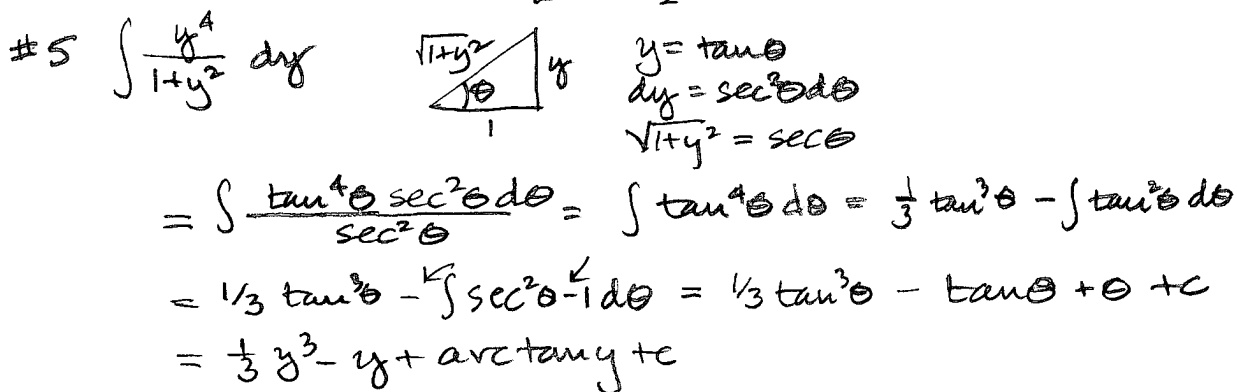 #5 ∫ y⁴/(1+y²) dy √1+y² y θ 1 y = tanθ
dy = sec²θdθ
√1+y² = secθ
= ∫ tan⁴θ sec²θdθ/sec²θ = ∫ tan⁴θ dθ = 1/3 tan³θ - ∫ tan²θ dθ
= 1/3 tan³θ - ∫ sec²θ - 1 dθ = 1/3 tan³θ - tanθ + θ + c
= 1/3 y³ - y + arctan y + c